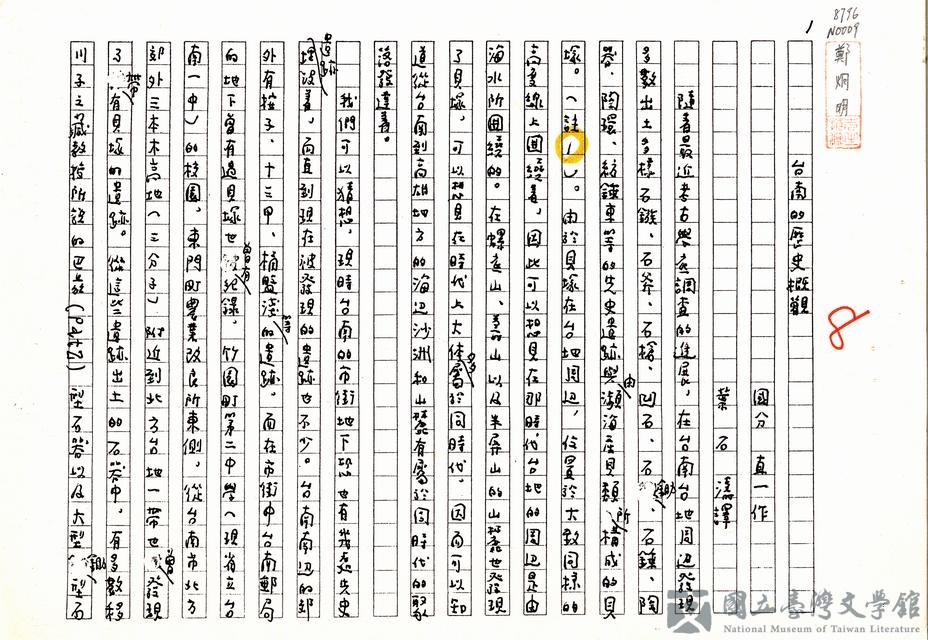 8796
N0009
鄭烱明
1
8
台南的歷史概觀
國分直一作
葉石濤譯
隨着最近考古學を調查的進展，在台南台地周邊發現
多數出土多樣石鏃、石斧、石槍、凹石、石鋤、石錘、陶
器、陶環、紡錘車等的先史遺跡與由瀕海產貝類所構成的貝
塚。（註1）。由於貝塚在台地周邊，位置於大致同樣的
高度線上圍繞着，因此可以想見在那時代台地的周邊是由
海水所圍繞的。在螺底山、壽山以及半屏山的山麓也發現
了貝塚，可以想見在時代上大體多屬於同時代。因而可以知
道從台南到高雄地方的海邊沙洲和山麓有屬於同時代的聚
落發達着。
我們可以猜想，現時台南的市街地下恐也有幾處先史遺跡
埋沒着，而直到現在被發現的遺跡也不少。台南南邊的郊
外有桉子、十三甲、桶盤淺等的遺跡。而在市街中台南郵局
的地下曾有遇見貝塚也曾有紀錄，竹園町第二中學（現省立台
南一中）的校園，東門町農業改良所東側，從台南市北方
郊外三本木高地（三分子）附近到北方台地一帶也曾發現
了帶有貝塚的遺跡。從這些遺跡出土的石器中，有多數移
川子之藏教授所說的巴茲(Patu)型石器以及大型鋤型石
國立臺灣文學館
National Museum of Taiwan Literature